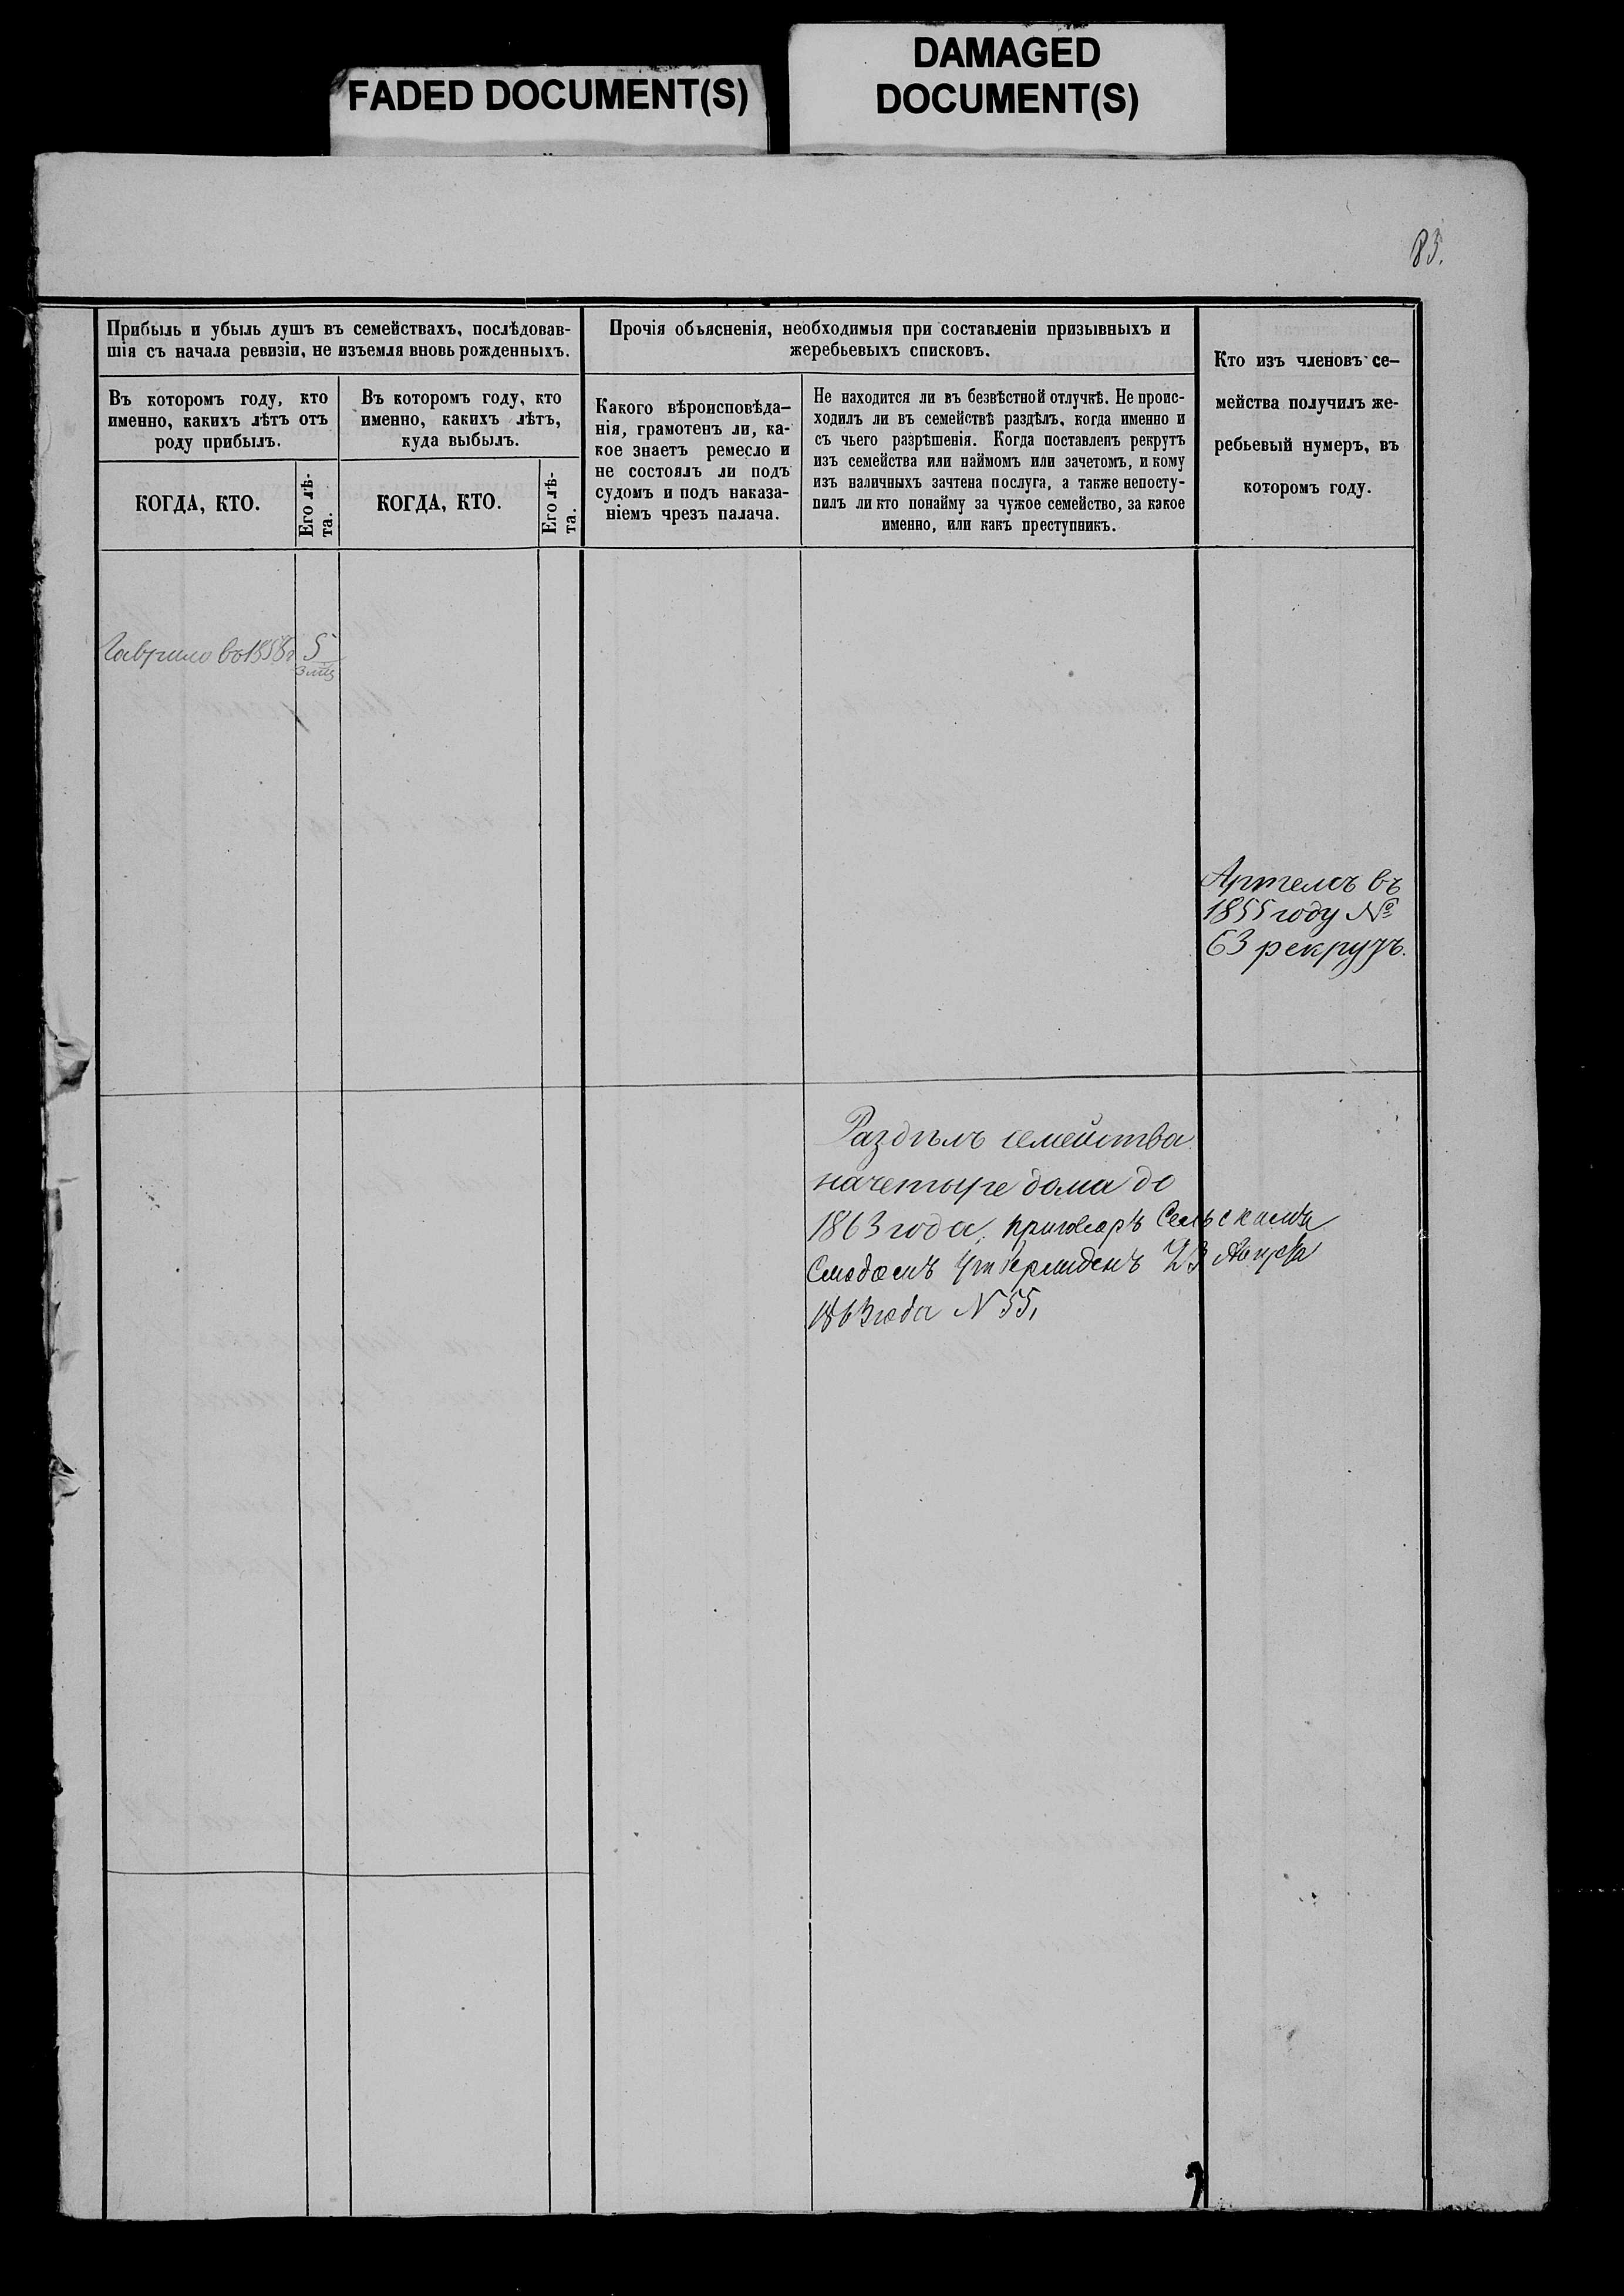 FADED DOCUMENT(S)
DAMAGED
DOCUMENT(S)
85.
Прибыль и убыль душъ въ семействахъ, послѣдовав-
шія съ начала ревизіи, не изъемля вновь рожденныхъ.
Въ которомъ году, кто
именно, какихъ лѣтъ отъ
роду прибылъ.
КОГДА, КТО.
Его лѣ-
та.
Въ которомъ году, кто
именно, какихъ лѣтъ,
куда выбылъ.
КОГДА, КТО.
Его лѣ-
та.
Прочія объясненія, необходимыя при составленіи призывныхъ и
жеребьевыхъ списковъ.
Какого вѣроисповѣда-
нія, грамотенъ ли, ка-
кое знаетъ ремесло и
не состоялъ ли подъ
судомъ и подъ наказа-
ніемъ чрезъ палача.
Не находится ли въ безвѣстной отлучкѣ. Не проис-
ходилъ ли въ семействѣ раздѣлъ, когда именно и
съ чьего разрѣшенія. Когда поставленъ рекрутъ
изъ семейства или наймомъ или зачетомъ, и кому
изъ наличныхъ зачтена послуга, а также непосту-
пилъ ли кто понайму за чужое семейство, за какое
именно, или какъ преступникъ.
Кто изъ членовъ се-
мейства получилъ же-
ребьевый нумеръ, въ
которомъ году.
Гаврило во 1858 5
Артемъ въ
1855 году №
63 рекрутъ.
Раздѣлъ семейства
на четыре дома до
1863 года, приговоръ Сельскимъ
Сходомъ утвержденъ 23 Августа
1863 года N 55,